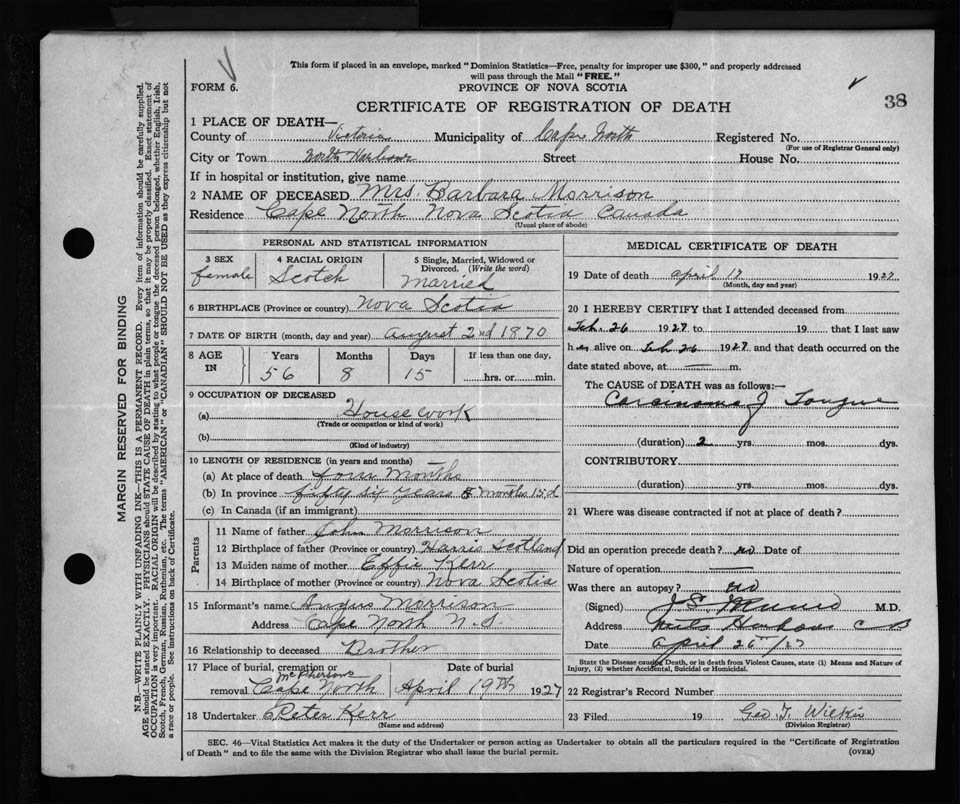 This form if placed in an envelope, marked "Dominion Statistics—Free, penalty for improper use $300," and properly addressed
will pass through the Mail "FREE."
FORM 6.
PROVINCE OF NOVA SCOTIA
38
CERTIFICATE OF REGISTRATION OF DEATH
1 PLACE OF DEATH—
County of Victoria Municipality of Cape North Registered No.
(For use of Registrar General only)
City or Town North Harbour Street House No.
If in hospital or institution, give name
2 NAME OF DECEASED Mrs. Barbara Morrison
Residence Cape North Nova Scotia Canada
(Usual place of abode)
PERSONAL AND STATISTICAL INFORMATION
3 SEX
female
4 RACIAL ORIGIN
Scotch
5 Single, Married, Widowed or
Divorced. (Write the word)
Married
6 BIRTHPLACE (Province or country) Nova Scotia
7 DATE OF BIRTH (month, day and year) August 2nd 1870
8 AGE
IN
Years Months Days If less than one day,
56 8 15 hrs. or min.
9 OCCUPATION OF DECEASED
(a) House work
(Trade or occupation or kind of work)
(b)
(Kind of industry)
10 LENGTH OF RESIDENCE (in years and months)
(a) At place of death four Months
(b) In province fifty six years 8 months 15 d
(c) In Canada (if an immigrant)
Parents
11 Name of father John Morrison
12 Birthplace of father (Province or country) Harris Scotland
13 Maiden name of mother Effie Kerr
14 Birthplace of mother (Province or country) Nova Scotia
15 Informant's name Angus Morrison
Address Cape North N.S.
16 Relationship to deceased Brother
17 Place of burial, cremation or
removal McPhersons
Cape North
Date of burial
April 19th 1927
18 Undertaker Peter Kerr
(Name and address)
MEDICAL CERTIFICATE OF DEATH
19 Date of death April 17 1927
(Month, day and year)
20 I HEREBY CERTIFY that I attended deceased from
Feb. 26 1927 to 19 that I last saw
her alive on Feb 26 1927 and that death occurred on the
date stated above, at — m.
The CAUSE of DEATH was as follows:—
Carcinoma of Tongue
(duration) 2 yrs. mos. dys.
CONTRIBUTORY
(duration) yrs. mos. dys.
21 Where was disease contracted if not at place of death?
Did an operation precede death? no Date of
Nature of operation —
Was there an autopsy? no
(Signed) M.D.
Address Neils Harbour C B
Date April 26th/27
State the Disease causing Death, or in death from Violent Causes, state (1) Means and Nature of
Injury, (2) whether Accidental, Suicidal or Homicidal.
22 Registrar's Record Number
23 Filed 19 Geo
(Division Registrar)
SEC. 46—Vital Statistics Act makes it the duty of the Undertaker or person acting as Undertaker to obtain all the particulars required in the "Certificate of Registration
of Death" and to file the same with the Division Registrar who shall issue the burial permit.
(OVER)
MARGIN RESERVED FOR BINDING
N.B.—WRITE PLAINLY WITH UNFADING INK—THIS IS A PERMANENT RECORD. Every item of information should be carefully supplied.
AGE should be stated EXACTLY. PHYSICIANS should STATE CAUSE OF DEATH in plain terms, so that it may be properly classified. Exact statement of
OCCUPATION is very important. RACIAL ORIGIN will be described by stating to what people or tongue the deceased person belonged, whether English, Irish,
Scotch, French, German, Russian, Ruthenian, etc. The terms "AMERICAN" or "CANADIAN" SHOULD NOT BE USED as they express citizenship but not
a race or people. See instructions on back of Certificate.